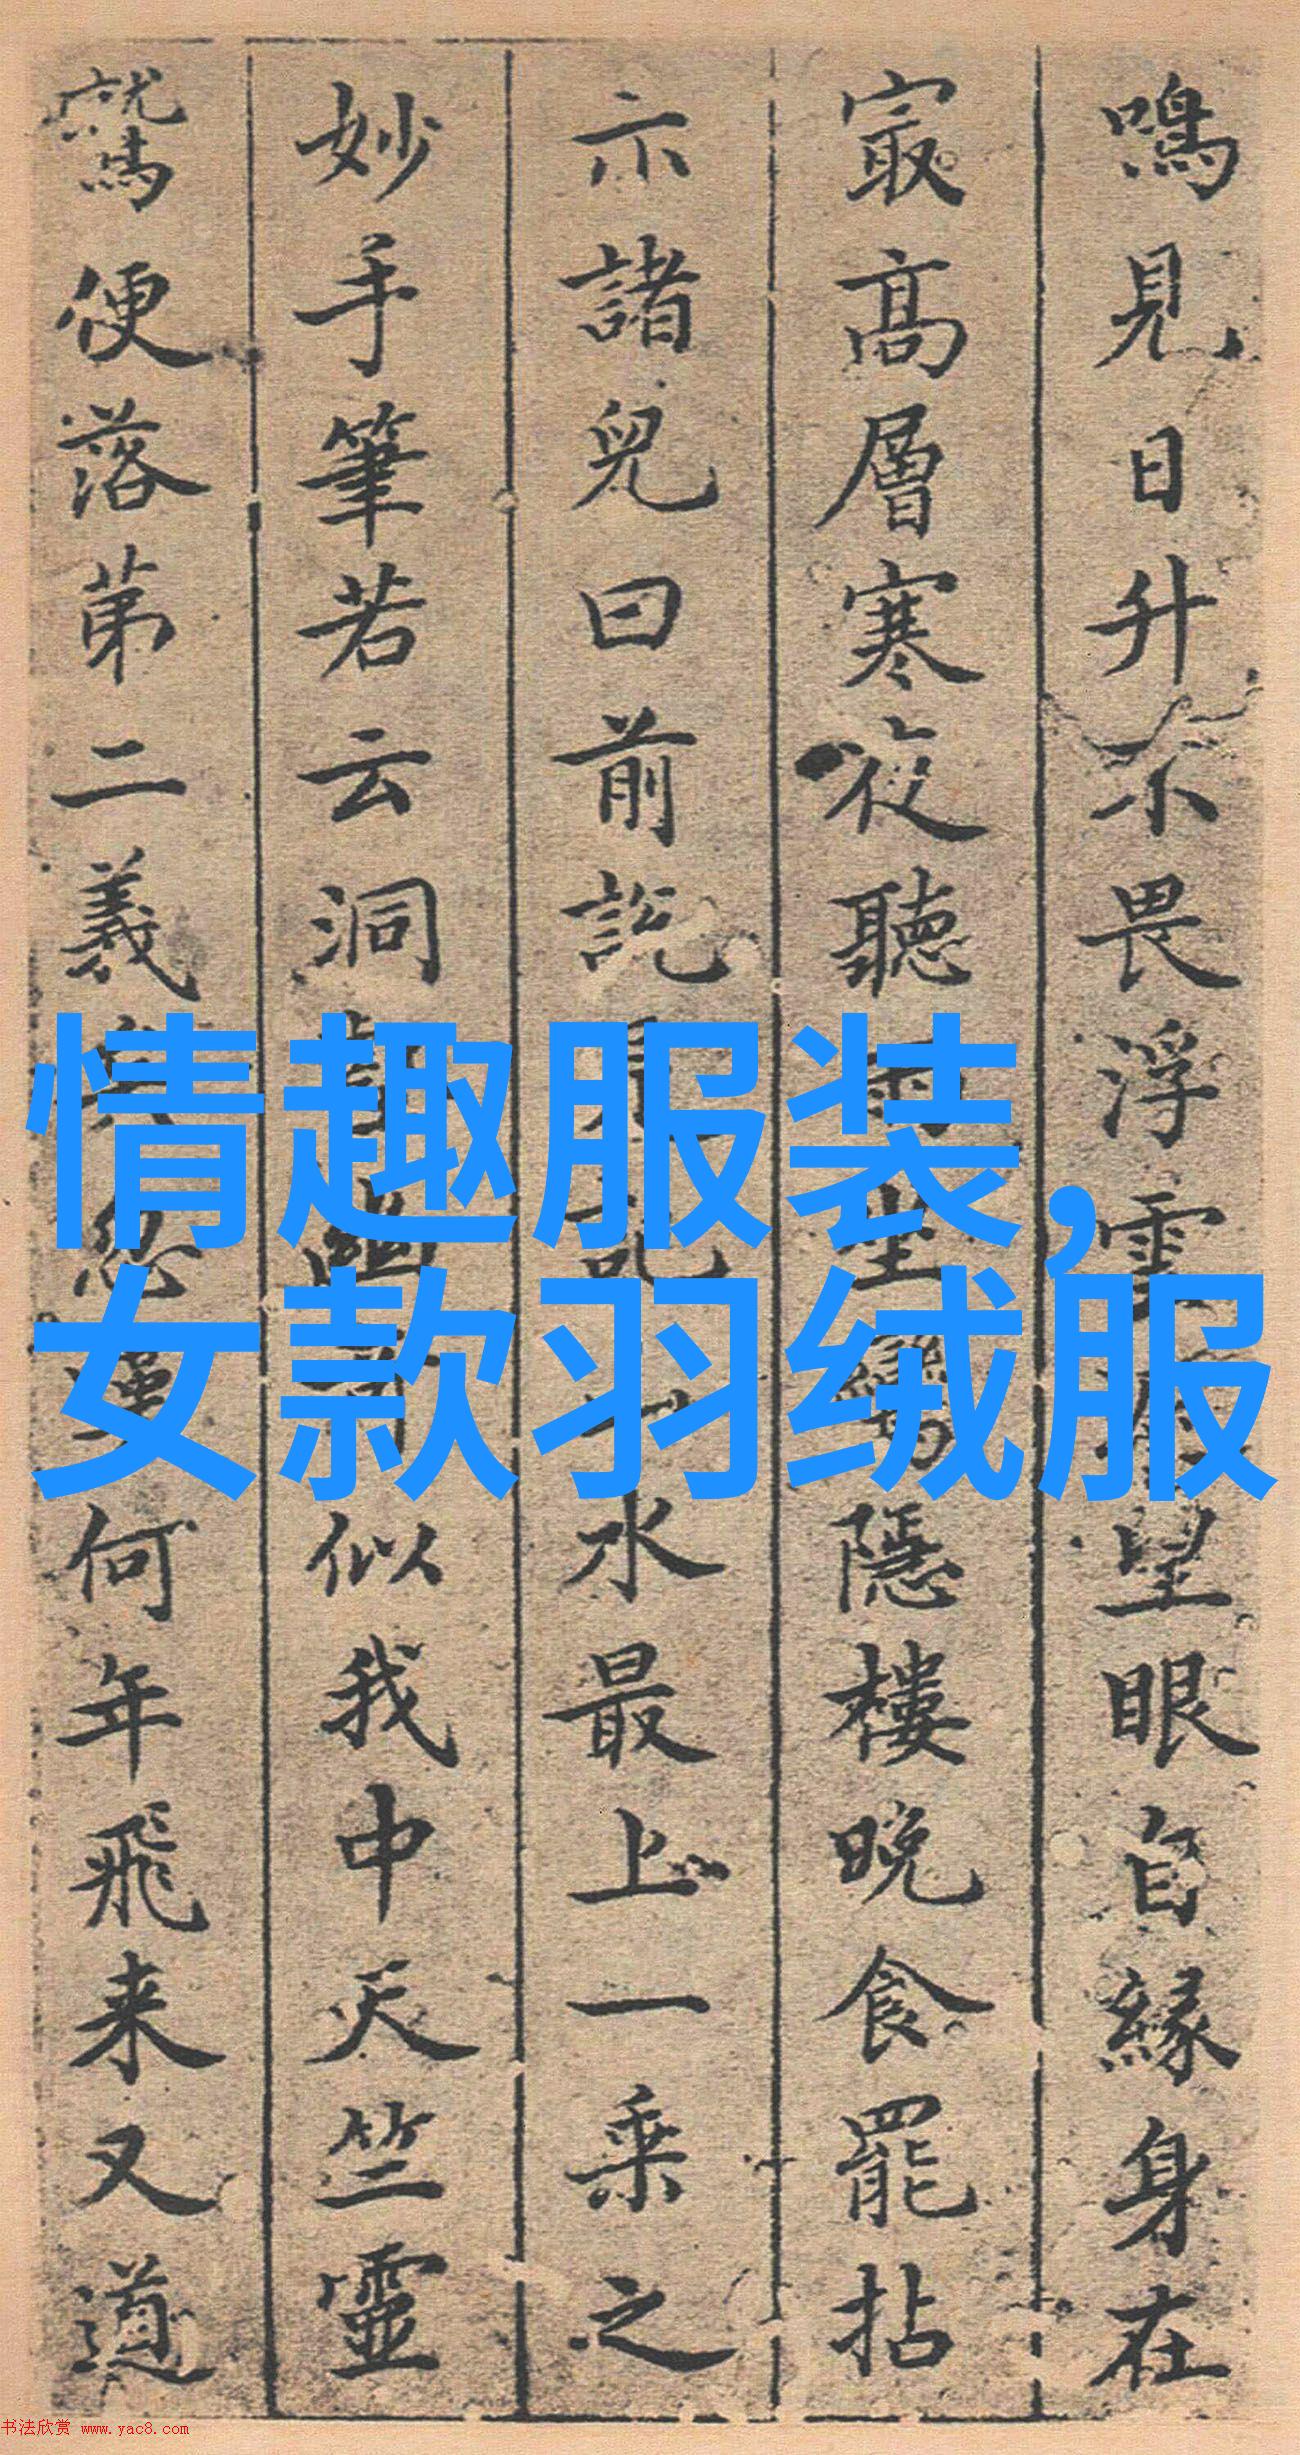 鳴見日升不畏浮雲望眼自緣身在
寂高層寒夜聽雨隱樓晚食罷拈
示諸兒曰前説水最上一乘之
妙手筆若云洞似我中天竺靈
鷲便落苐二義忽何年飛来又道
情趣服装,
女款羽绒服
书法欣赏 www.yac8.com